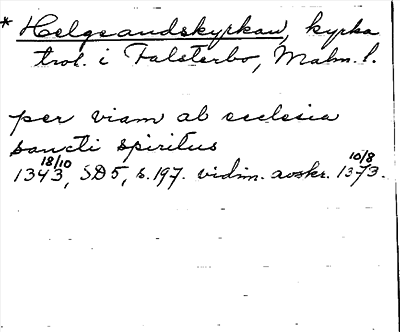 * Helgeandskyrkan, kyrka
trol. i Falsterbo, Malm. l.
per viam ab ecclesia
sancti spiritus
18/10 10/8
1343, SD 5, s. 197. vidim. avskr. 1373.